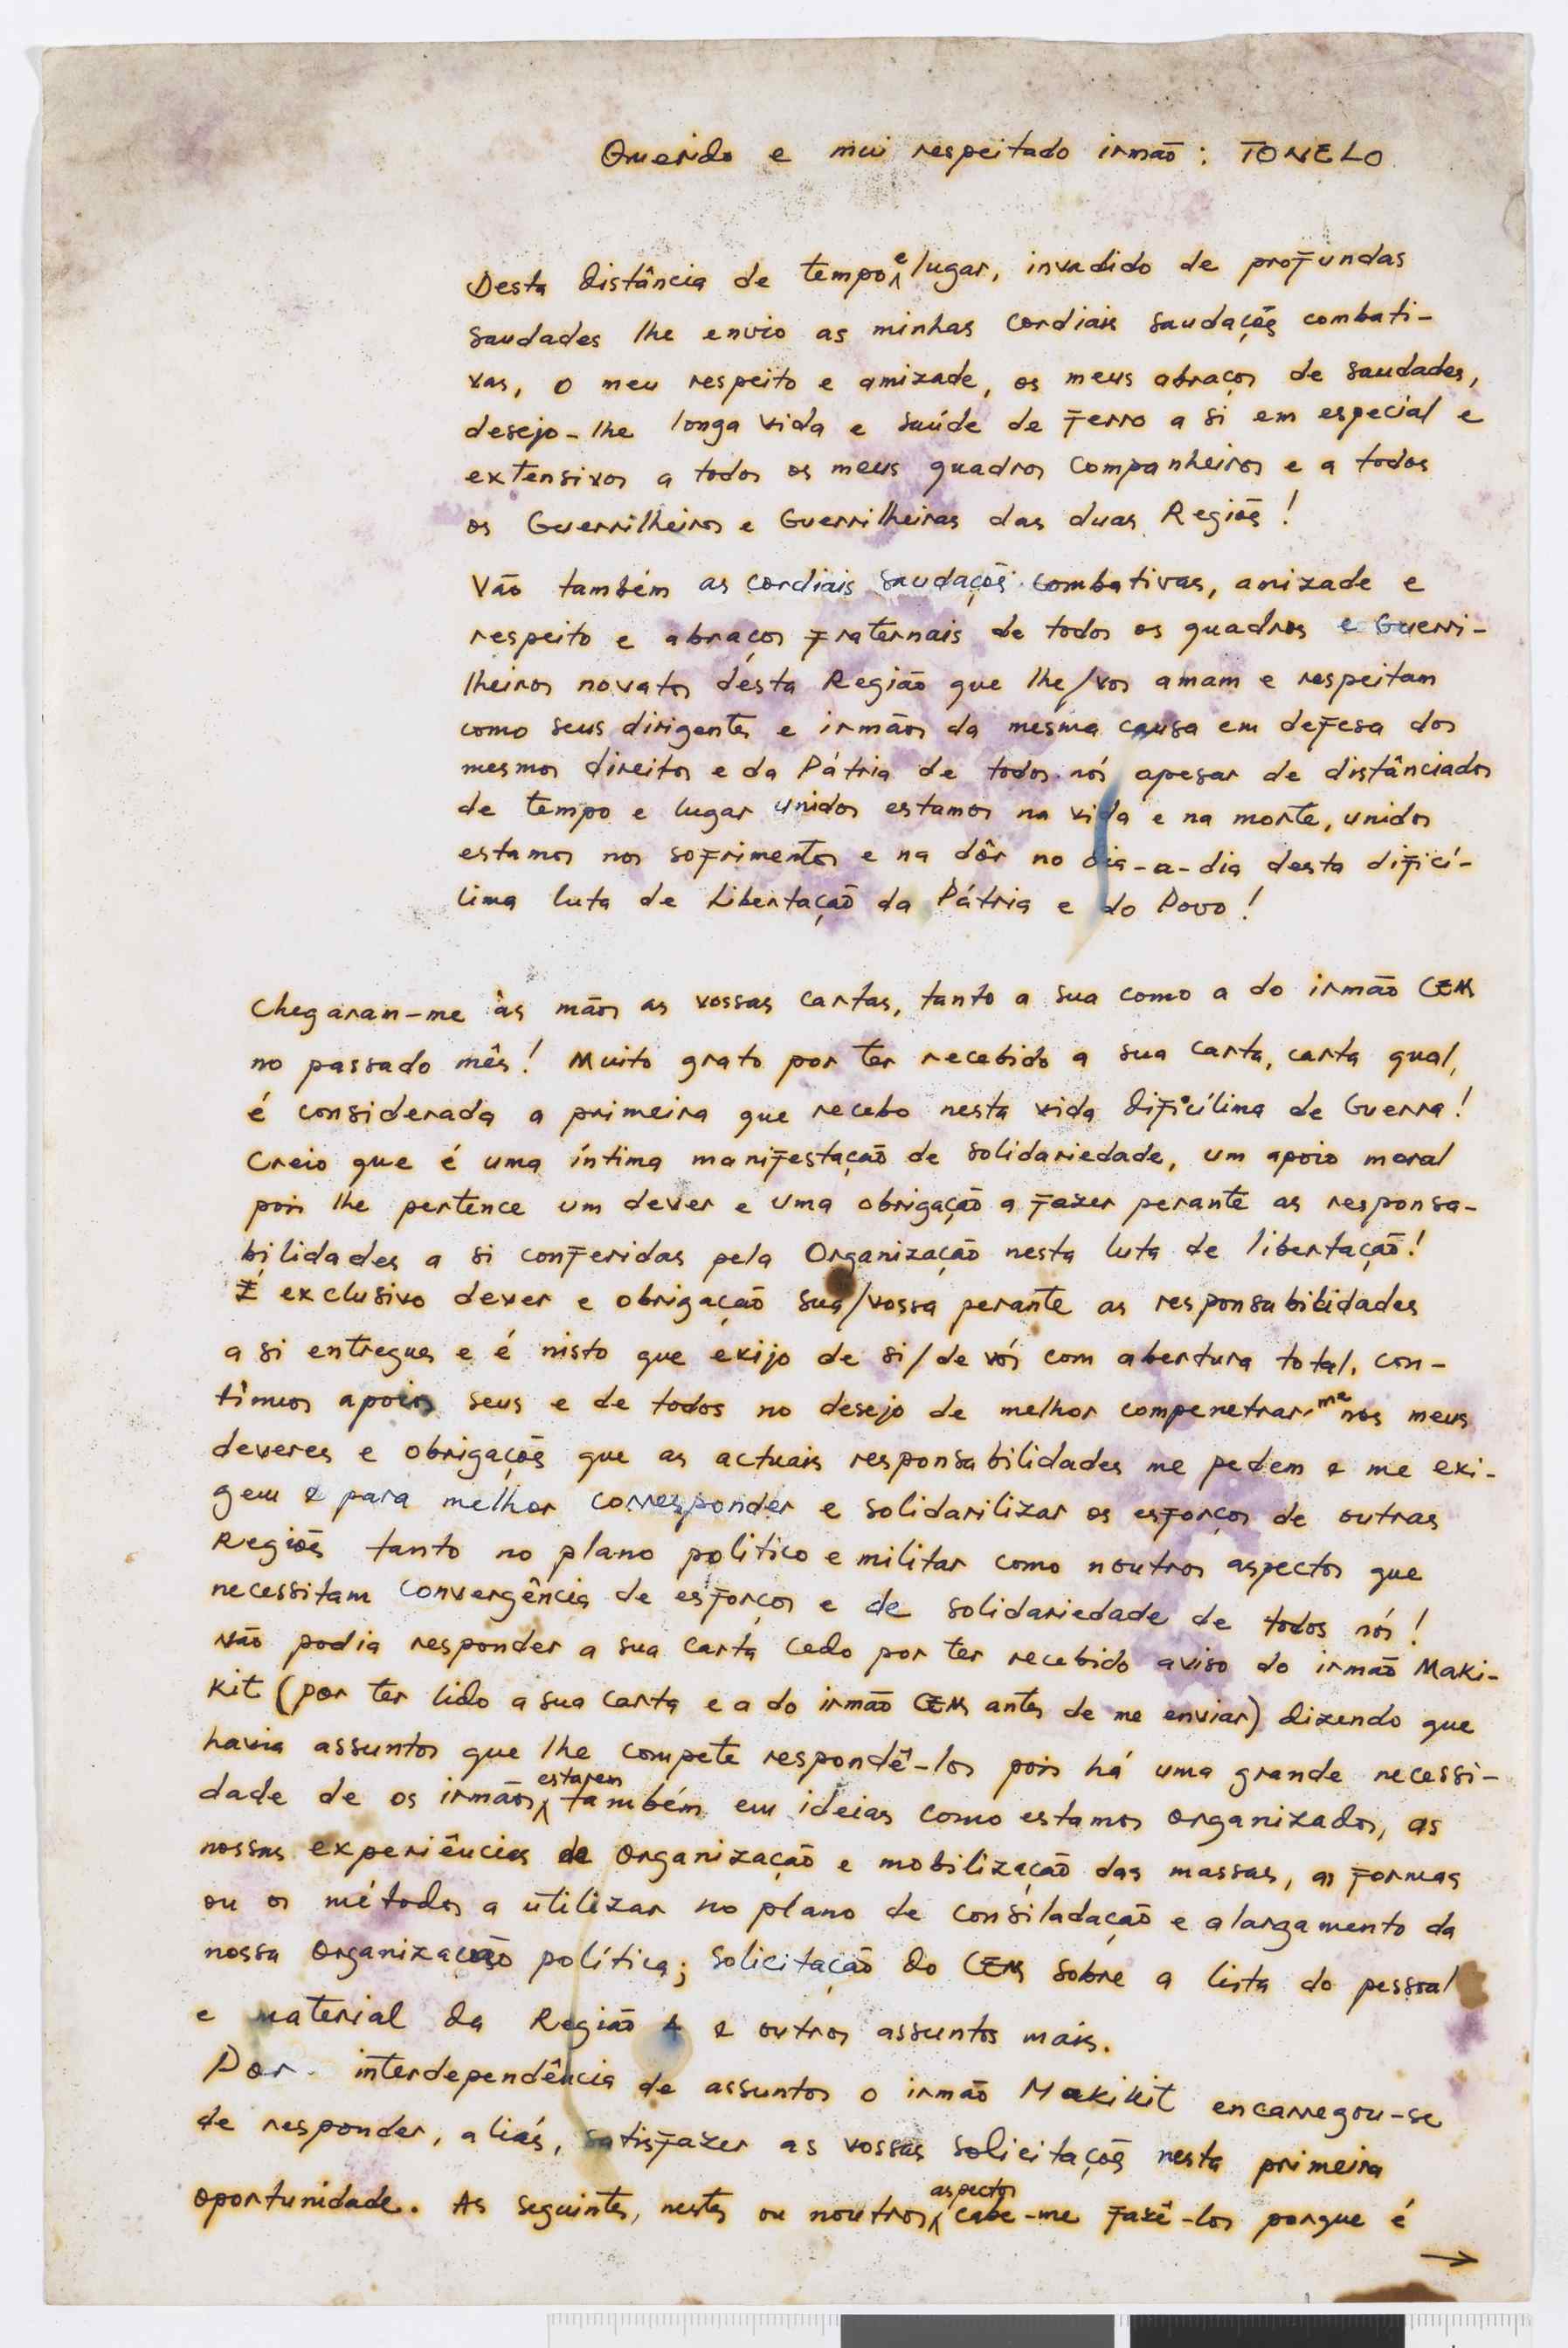 Querido e mui respeitado irmão: TONELO
Desta distância de tempo e lugar, invadido de profundas
saudades lhe envio as minhas cordiais saudaçõs combati-
vas, o meu respeito e amizade, os meus abraços de saudades,
desejo-lhe longa vida e saúde de ferro a si em especial e
extensivos a todos os meus quadros companheiros e a todos
os Guerrilheiros e Guerrilheiras das duas Regiõs!
Vão também as cordiais saudaçõs combativas, amizade e
respeito e abraços fraternais de todos os quadros e Guerri-
lheiros novatos désta Região que lhe/vos amam e respeitam
como seus dirigentes e irmãos da mesma causa em defesa dos
mesmos direitos e da Pátria de todos nós apesar de distânciados
de tempo e lugar unidos estamos na vida e na morte, unidos
estamos nos sofrimentos e na dôr no dia-a-dia desta dificí-
lima luta de Libertação da Pátria e do Povo!
Chegaram-me às mãos as vossas cartas, tanto a sua como a do irmão CEM
no passado mês! Muito grato por ter recebido a sua carta, carta qual,
é considerada a primeira que recebo nesta vida dificílima de Guerra!
Creio que é uma íntima manifestação de solidariedade, um apoio moral
pois lhe pertence um dever e uma obrigação a fazer perante as responsa-
bilidades a si conferidas pela Organização nesta luta de libertação!
É exclusivo dever e obrigação sua/vossa perante as responsabilidades
a si entregues e é nisto que exijo de si/de vós com abertura total, con-
tínuos apoios seus e de todos no desejo de melhor compenetrar-me nos meus
deveres e obrigaçõs que as actuais responsabilidades me pedem e me exi-
gem e para melhor corresponder e solidarilizar os esforços de outras
Regiõs tanto no plano político e militar como noutros aspectos que
necessitam convergência de esforços e de solidariedade de todos nós!
Não podia responder a sua carta cedo por ter recebido aviso do irmão Maki-
kit (por ter lido a sua carta e a do irmão CEM antes de me enviar) dizendo que
havia assuntos que lhe compete respondê-los pois há uma grande necessi-
dade de os irmãos estarem também em ideias como estamos organizados, as
nossas experiências de organização e mobilização das massas, as formas
ou os métodos a utilizar no plano de consiladação e alargamento da
nossa organização política; solicitação do CEM sobre a lista do pessoal
e material da Região 4 e outros assuntos mais.
Por interdependência de assuntos o irmão Makikit encarregou-se
de responder, aliás, satisfazer as vossas solicitaçõs nesta primeira
oportunidade. As seguintes, nestes ou noutros aspectos cabe-me fazê-los porque é
→